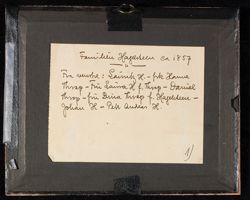 Familien Hagelsteen ca 1857
Fra venstre: Lauritz H - frk Hanna
Thrap - Fru Laura H f. Thrap - Daniel
Thrap - fru Dina Thrap f. Hagelsteen -
Johan H - Pett Andrea H.
1)